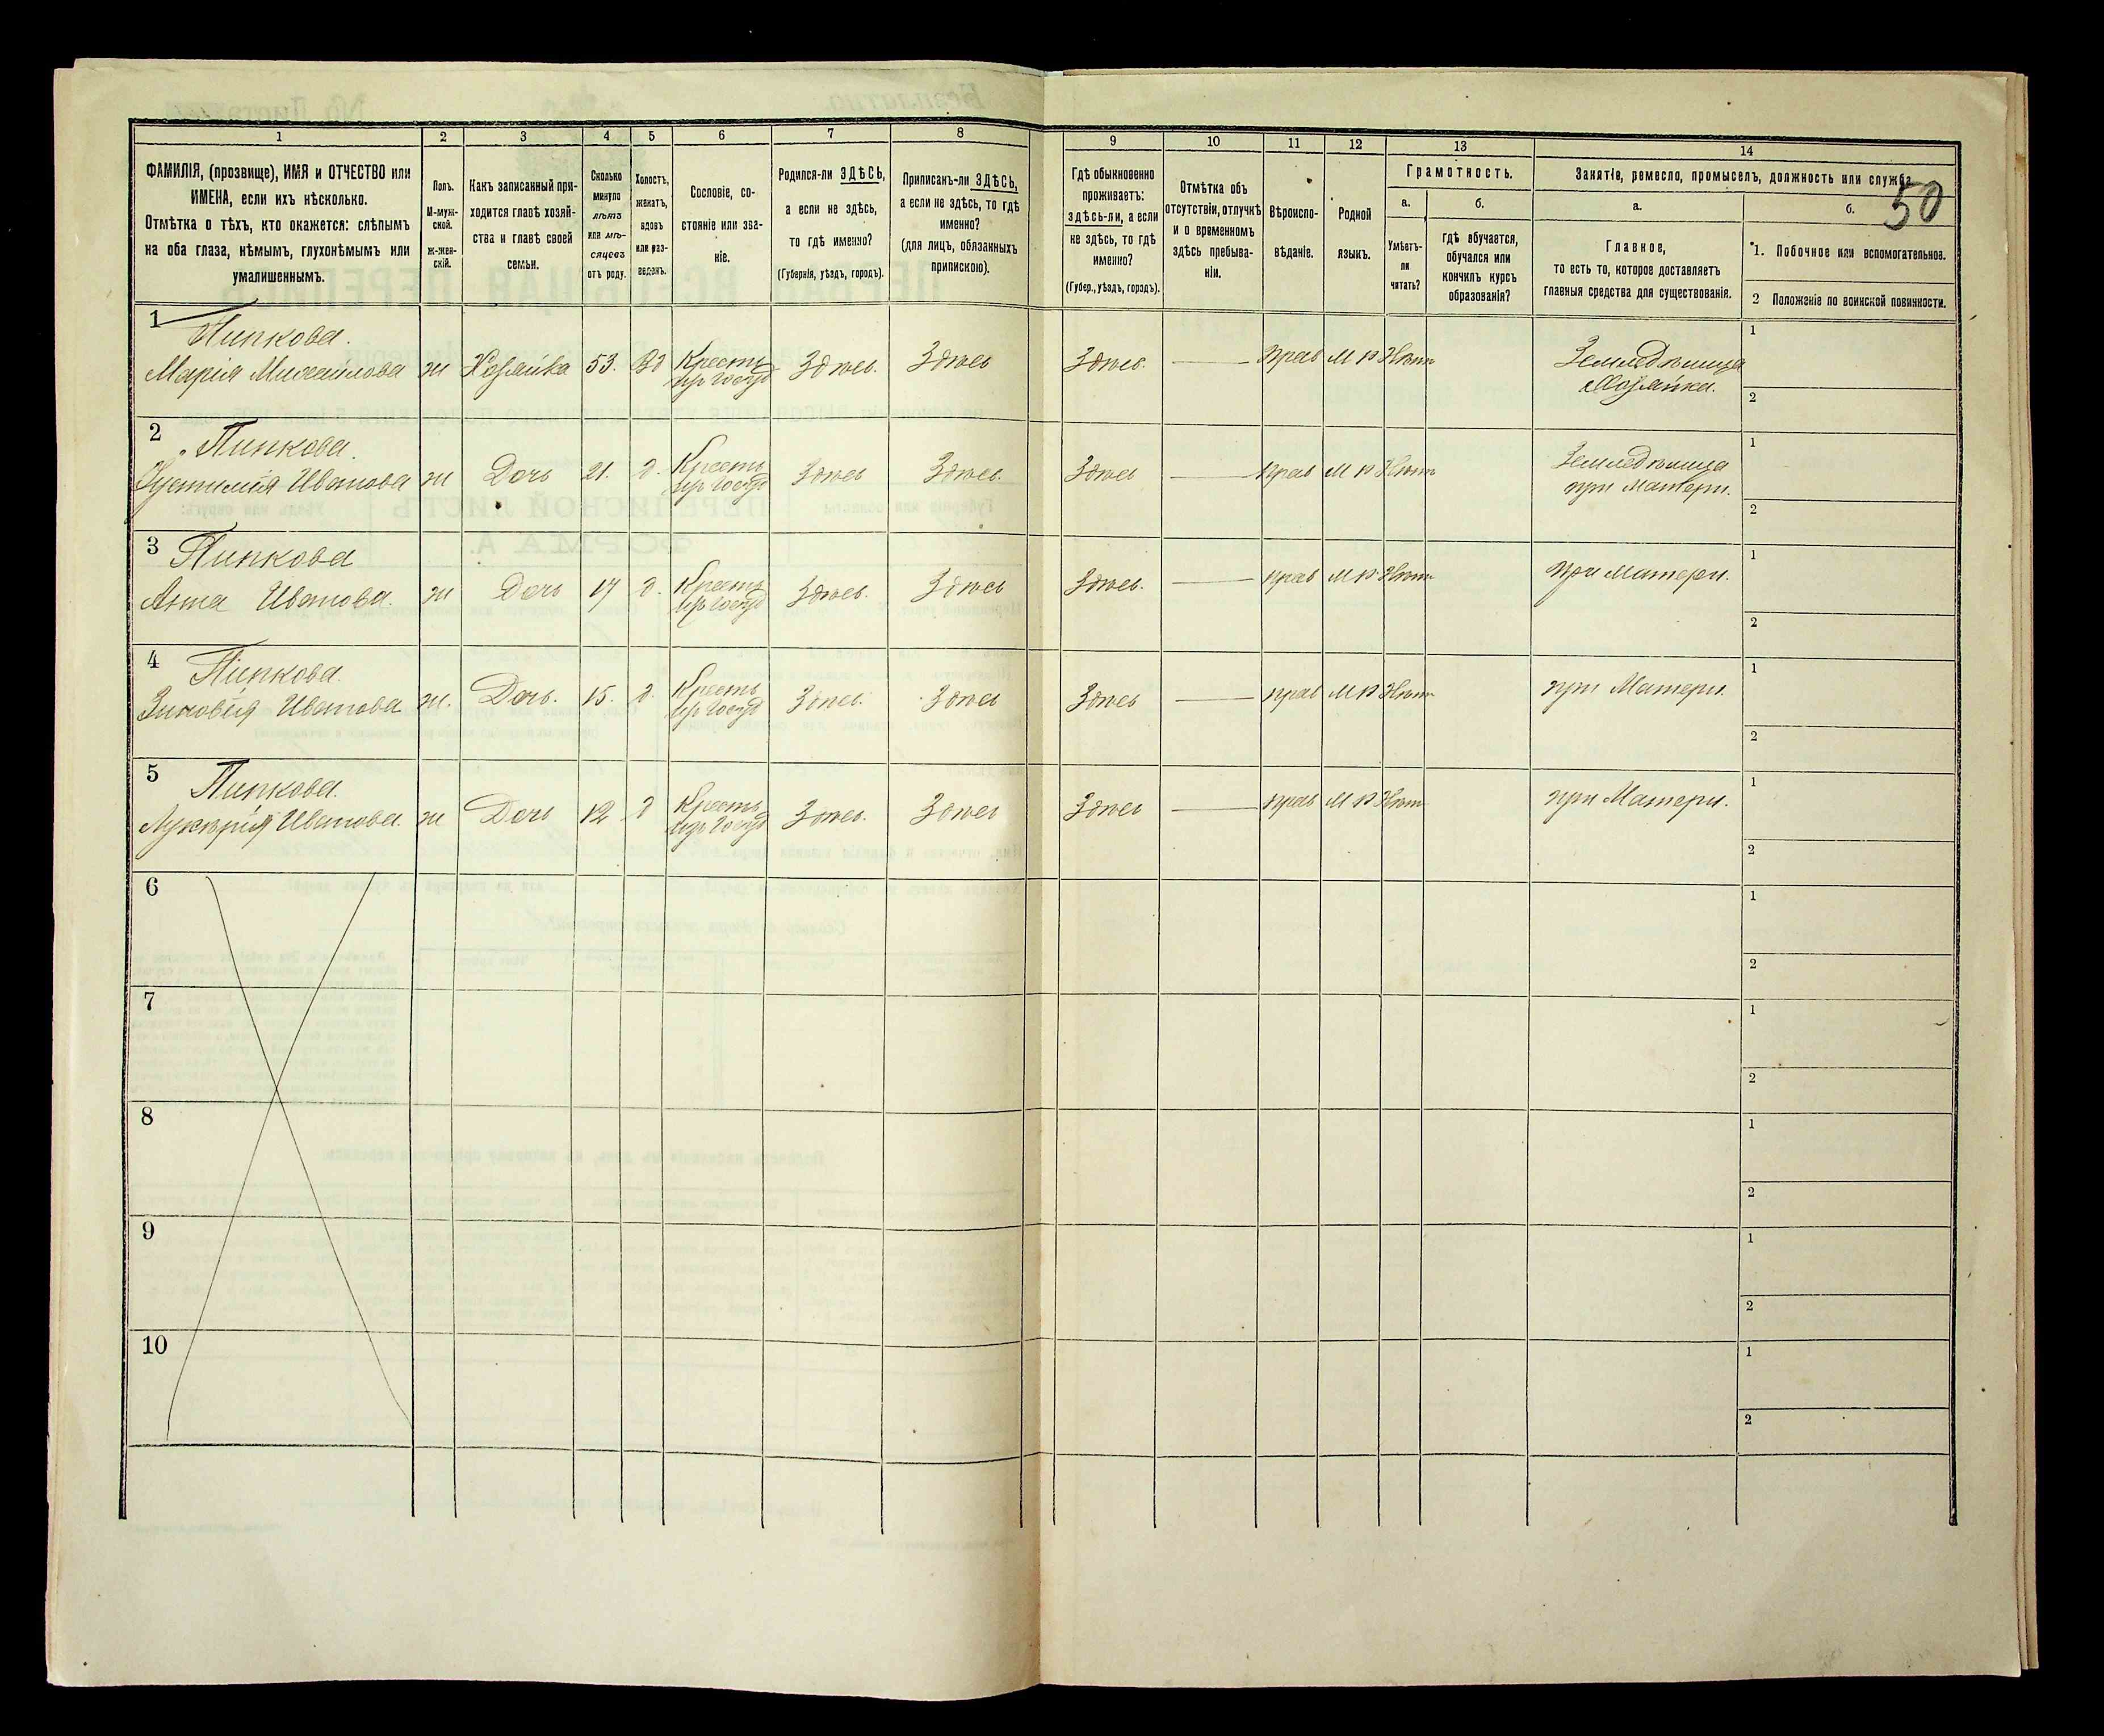 50
1 2 3 4 5 6 7 8 9 10 11 12 13 14
ФАМИЛІЯ, (прозвище), ИМЯ и ОТЧЕСТВО или
ИМЕНА, если ихъ нѣсколько.
Отмѣтка о тѣхъ, кто окажется: слѣпымъ
на оба глаза, нѣмымъ, глухонѣмымъ или
умалишеннымъ.
Полъ.
М-муж-
ской.
ж-жен-
скій.
Какъ записанный при-
ходится главѣ хозяй-
ства и главѣ своей
семьи.
Сколько
минуло
лѣтъ
или мѣ-
сяцевъ
отъ роду.
Холостъ,
женатъ,
вдовъ
или раз-
веденъ.
Сословіе, со-
стояніе или зва-
ніе.
Родился-ли ЗДѢСЬ,
а если не здѣсь,
то гдѣ именно?
(Губернія, уѣздъ, городъ).
Приписанъ-ли ЗДѢСЬ,
а если не здѣсь, то гдѣ
именно?
(для лицъ, обязанныхъ
припискою).
Гдѣ обыкновенно
проживаетъ:
здѣсь-ли, а если
не здѣсь, то гдѣ
именно?
(Губер., уѣздъ, городъ).
Отмѣтка объ
отсутствіи, отлучкѣ
и о временномъ
здѣсь пребыва-
ніи.
Вѣроиспо-
вѣданіе.
Родной
языкъ.
Грамотность.
а.
Умѣетъ-
ли
читать?
б.
гдѣ обучается,
обучался или
кончилъ курсъ
образованія?
Занятіе, ремесло, промыселъ, должность или служба
а.
Главное,
то есть то, которое доставляетъ
главныя средства для существованія.
б.
1. Побочное или вспомогательное.
2 Положеніе по воинской повинности.
1
Пипкова.
Марія Михайлова ж Хозяйка 53. Вд Крестъ Здѣсь. Здѣсь Здѣсь. — прав М Р Нѣтъ Земледѣлица 1
Хозяйка. 2
2
Пипкова.
Устинія Иванова ж Дочь 21. д. Крестъ Здѣсь Здѣсь. Здѣсь — прав М Р Нѣтъ Земледѣлица 1
при Матери. 2
3
Пипкова
Анна Иванова. ж Дочь 17 д. Крестъ Здѣсь. Здѣсь Здѣсь. — прав М Р Нѣтъ при Матери. 1
2
4
Пипкова.
Зиновія Иванова ж. Дочь. 15. д. Крестъ Здѣсь. Здѣсь Здѣсь — прав М Р Нѣтъ при Матери. 1
2
5
Пипкова.
Лукерія Иванова. ж Дочь 12 д Крестъ Здѣсь. Здѣсь Здѣсь — прав М Р Нѣтъ при Матери. 1
2
6 1
2
7 1
2
8 1
2
9 1
2
10 1
2